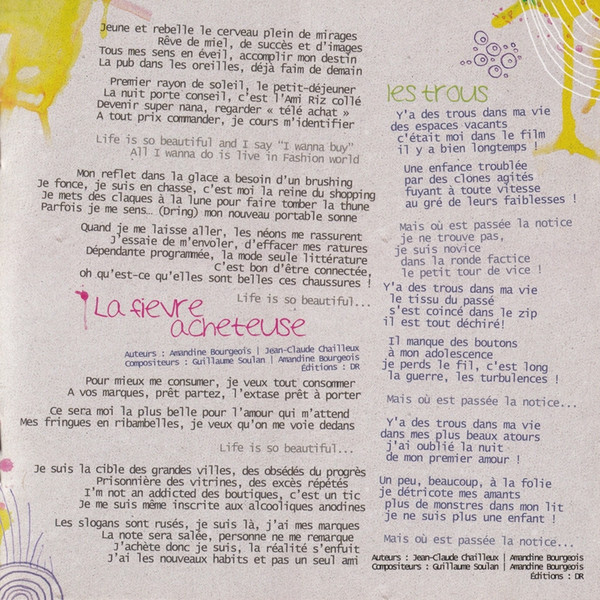 Jeune et rebelle le cerveau plein de mirages
Rêve de miel, de succès et d'images
Tous mes sens en éveil, accomplir mon destin
La pub dans les oreilles, déjà faim de demain
Premier rayon de soleil, le petit-déjeuner
La nuit porte conseil, c'est l'Ami Riz collé
Devenir super nana, regarder « télé achat »
A tout prix commander, je cours m'identifier
Life is so beautiful and I say "I wanna buy"
All I wanna do is live in Fashion world
Mon reflet dans la glace a besoin d'un brushing
Je fonce, je suis en chasse, c'est moi la reine du shopping
Je mets des claques à la lune pour faire tomber la thune
Parfois je me sens… (Dring) mon nouveau portable sonne
Quand je me laisse aller, les néons me rassurent
J'essaie de m'envoler, d'effacer mes ratures
Dépendante programmée, la mode seule littérature
C'est bon d'être connectée,
oh qu'est-ce qu'elles sont belles ces chaussures !
Life is so beautiful...
La fievre
acheteuse
Auteurs : Amandine Bourgeois | Jean-Claude Chailleux
Compositeurs : Guillaume Soulan | Amandine Bourgeois
Éditions : DR
Pour mieux me consumer, je veux tout consommer
A vos marques, prêt partez, l'extase prêt à porter
Ce sera moi la plus belle pour l'amour qui m'attend
Mes fringues en ribambelles, je veux qu'on me voie dedans
Life is so beautiful...
Je suis la cible des grandes villes, des obsédés du progrès
Prisonnière des vitrines, des excès répétés
I'm not an addicted des boutiques, c'est un tic
Je me suis même inscrite aux alcooliques anodines
Les slogans sont rusés, je suis là, j'ai mes marques
La note sera salée, personne ne me remarque
J'achète donc je suis, la réalité s'enfuit
J'ai les nouveaux habits et pas un seul ami
les trous
Y'a des trous dans ma vie
des espaces vacants
c'était moi dans le film
il y a bien longtemps !
Une enfance troublée
par des clones agités
fuyant à toute vitesse
au gré de leurs faiblesses !
Mais où est passée la notice
je ne trouve pas,
je suis novice
dans la ronde factice
le petit tour de vice !
Y'a des trous dans ma vie
le tissu du passé
s'est coincé dans le zip
il est tout déchiré!
Il manque des boutons
à mon adolescence
je perds le fil, c'est long
la guerre, les turbulences !
Mais où est passée la notice...
Y'a des trous dans ma vie
dans mes plus beaux atours
j'ai oublié la nuit
de mon premier amour !
Un peu, beaucoup, à la folie
je détricote mes amants
plus de monstres dans mon lit
je ne suis plus une enfant !
Mais où est passée la notice...
Auteurs : Jean-Claude Chailleux | Amandine Bourgeois
Compositeurs : Guillaume Soulan | Amandine Bourgeois
Éditions : DR